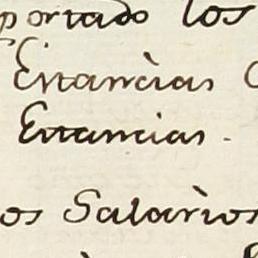 portado los
Estancias
Estancias.
os Salarios